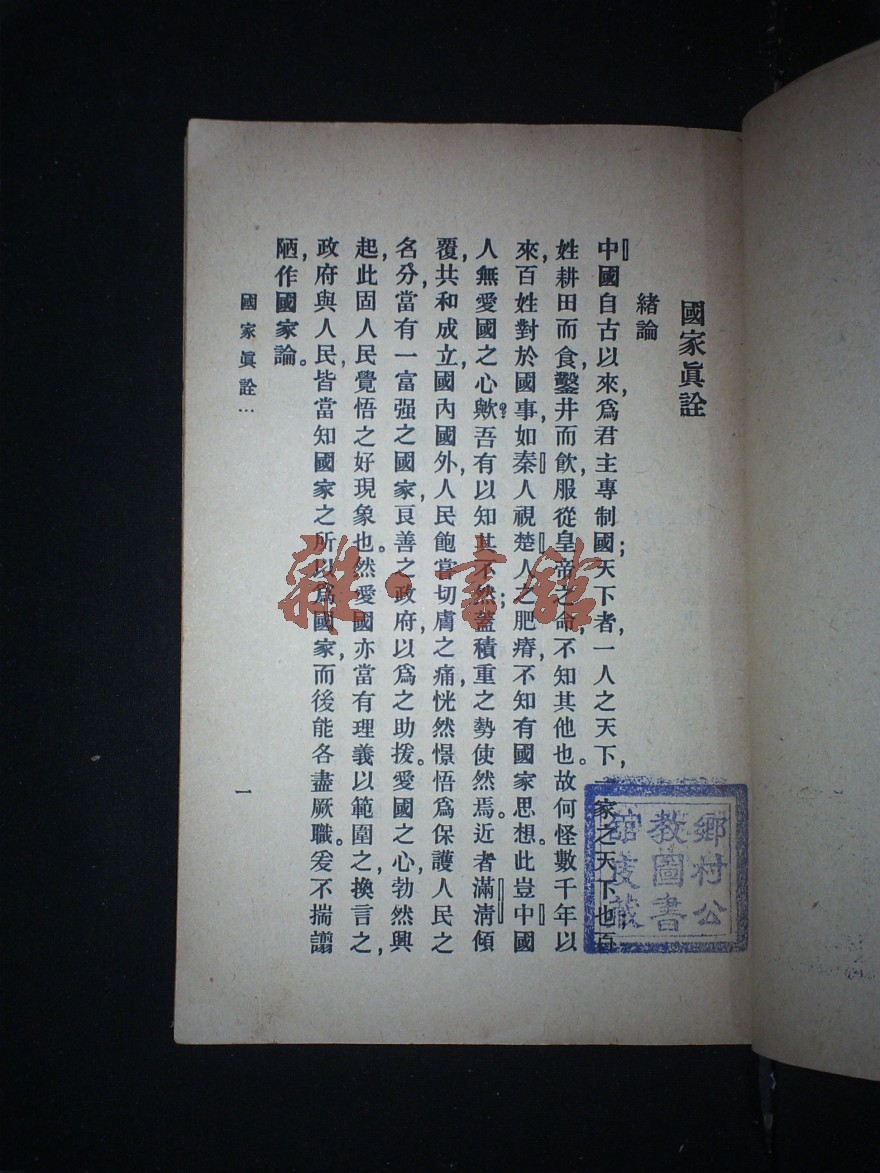 國家眞詮
緒論
中國自古以來,爲君主專制國;天下者,一人之天下,一家之天下也百
姓耕田而食,鑿井而飲,服從皇帝之命,不知其他也。故何怪數千年以
來,百姓對於國事,如秦人視楚人之肥瘠,不知有國家思想。此豈中國
人無愛國之心歟?吾有以知其不然;蓋積重之勢使然焉。近者滿淸傾
覆,共和成立,國內國外,人民飽嘗切膚之痛,恍然憬悟爲保護人民之
名分,當有一富强之國家,良善之政府,以爲之助援。愛國之心,勃然興
起,此固人民覺悟之好現象也。然愛國亦當有理義以範圍之,換言之,
政府與人民,皆當知國家之所以爲國家,而後能各盡厥職。爰不揣譾
陋,作國家論。
國家眞詮…
一
雜·書館
鄉村公
教圖書
館皮藏